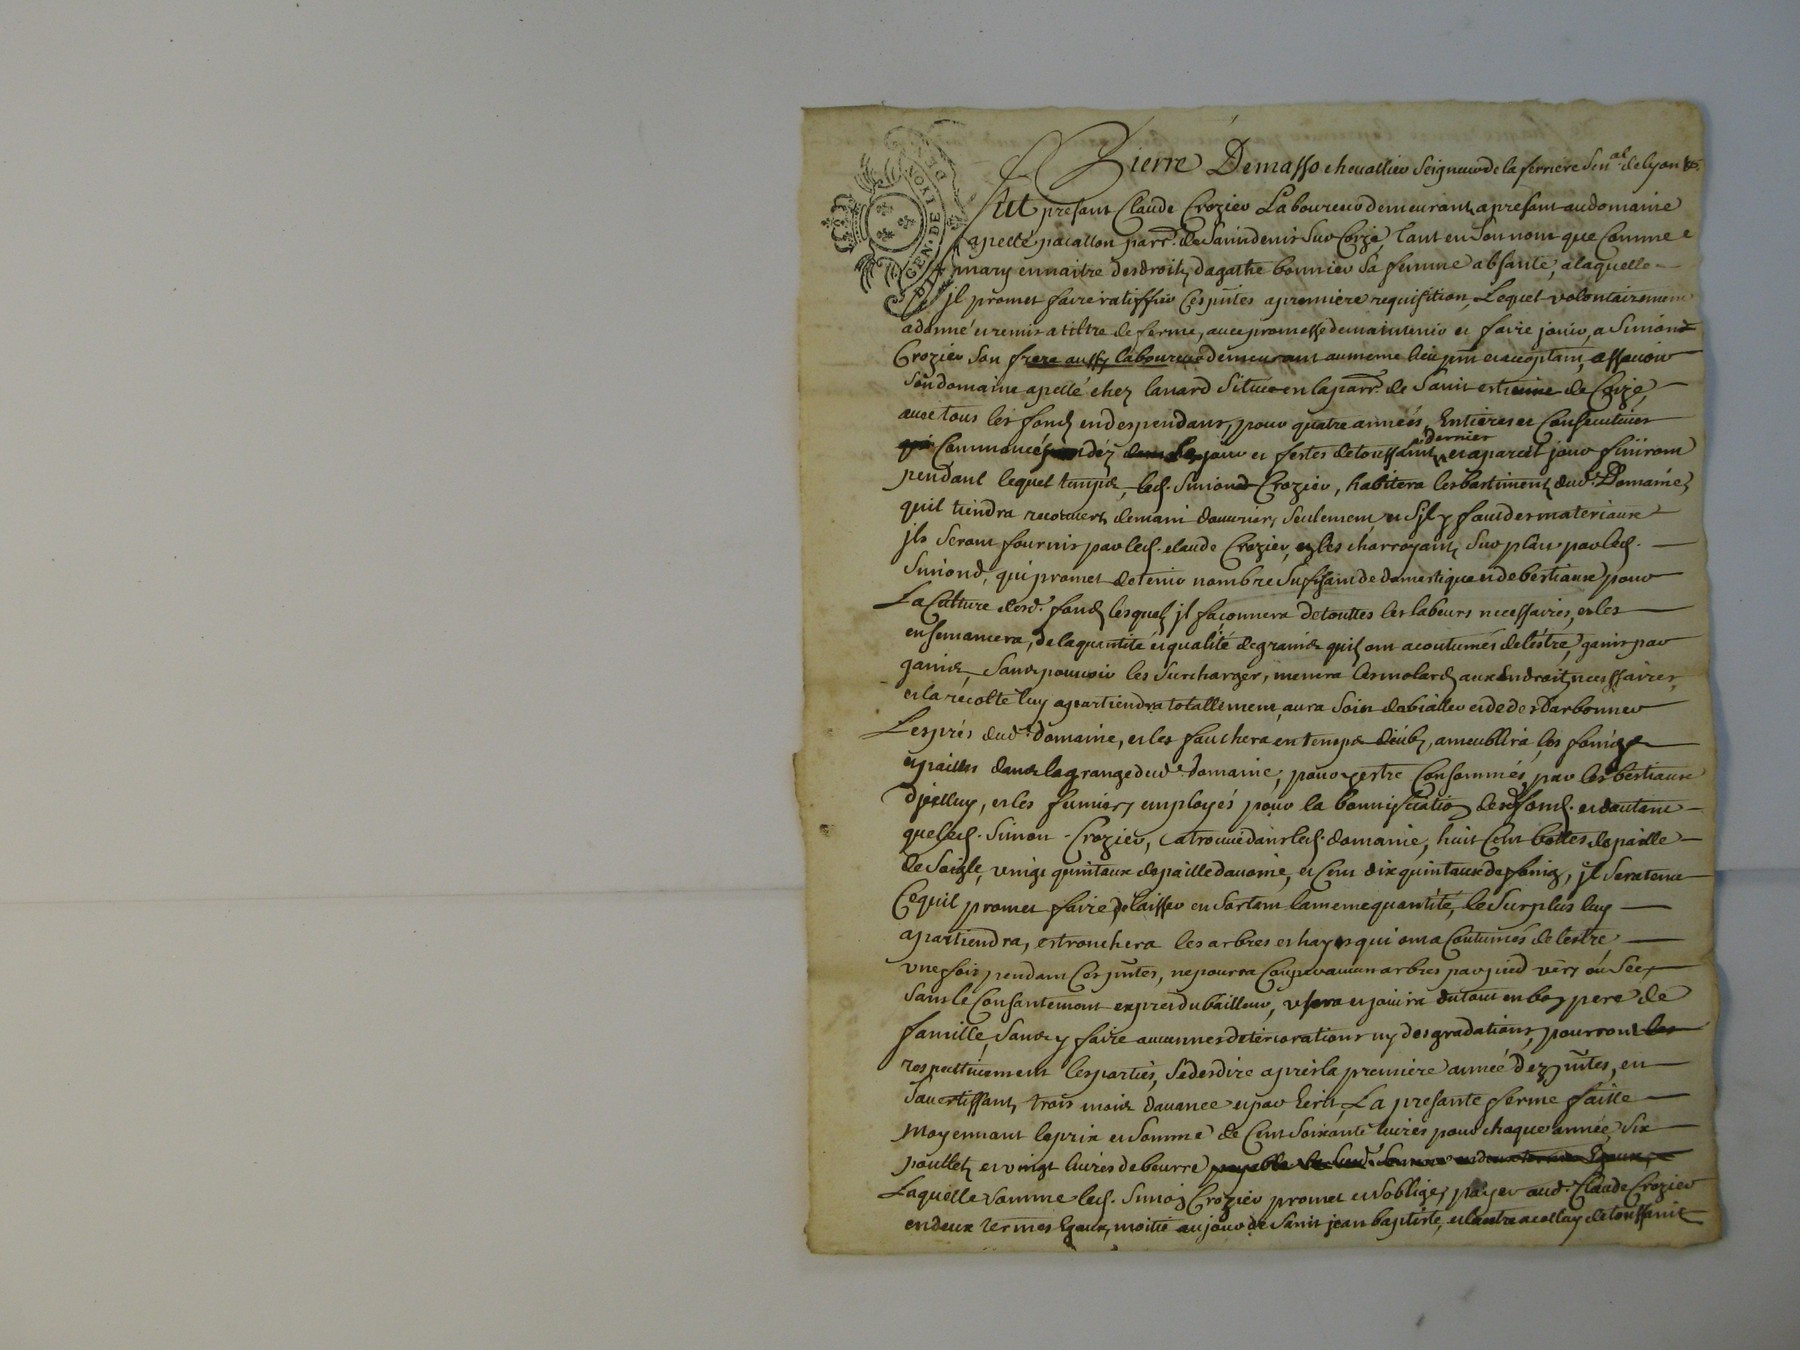 GEN. DE LYON
Pierre Demasso chevallier Seigneur de la ferriere Sen.al de lyon &c.
fut presant Claude Crozier Laboureur demeurant a presant au domaine
apellé pacallon parr.e de Saint denis Sur Coize, tant en Son nom que Comme
mary et maitre des droits dagathe bonnier Sa femme absante, a laquelle
jl promet faire ratiffier Ces pntes a premiere requisition, Lequel volontairement
a donné et remis a tiltre de ferme, avec promesse de maintenir et faire jouir, a Simond
Crozier Son frere aussy laboureur demeurant au meme lieu pnt et acceptant, assavoir
Son domaine apellé chez lanard Situé en la parr.e de Saint estienne de Coize,
avec tous les fonds en despendans, pour quatre années Entieres et Consecutives
Commancés dez le jour et festes de toussaint dernier et a pareil jour finiront
pendant lequel temps, led. Simond Crozier, habitera les bastiments dud. Domaine,
quil tiendra recouverts de main douvriers Seulement, et Sjl y faut des materiaux
jls Seront fournis par led. claude Crozier, et les charroyant Sur place par led.
Simond, qui promet de tenir nombre Suffisant de domestiques et de bestiaux pour
La Culture desd. fonds lesquels jl façonnera de touttes les labeurs necessaires, et les
ensemancera, de la quantité et qualité de grains quils ont acoutumés de lestre, gain par
gains, Sans pouvoir les Surcharger, menera les molards aux Endroits necessaires,
et la récolte luy apartiendra totallement, aura Soin dabialler et de desdarbonner
Les prés dud. domaine, et les fauchera en temps deub, ameublira les foings
et pailles dans la grange dud. domaine, pour y estre Consommés par les bestiaux
djcelluy, et les fumiers employés pour la bonnification desd. fonds. et dautant
que led. Simon Crozier, a trouvé dans led. domaine, huit Cent bottes de paille
de Soigle, vingt quintaux de paille davoine, et Cent dix quintaux de foing, jl Sera tenu
Ce quil promet faire delaisser en Sortant la meme quantité, le Surplus luy
apartiendra, estronchera les arbres et hayes qui ont a Coutumés de lestre
une fois pendant Ces pntes, ne pourra Couper aucun arbres par pied verts ou Secs
Sans le Consantement expres du bailleur, usera et jouira du tout en bon pere de
famille, Sans y faire aucunnes deteriorations ny desgradations, pourront les
respectivement les parties, Se desdire apres la premiere année dez pntes, en
Savertissant trois mois davance et par Ecrit, La presante ferme faitte
Moyennant le prix et Somme de Cent Soixante livres pour chaque année, Six
poullets et vingt livres de beurre
Laquelle Somme led. Simon Crozier promet et Soblige, payer aud. Claude Crozier
en deux termes Egaux, moitié au jour de Saint jean baptiste, et lautre a celluy de toussaint